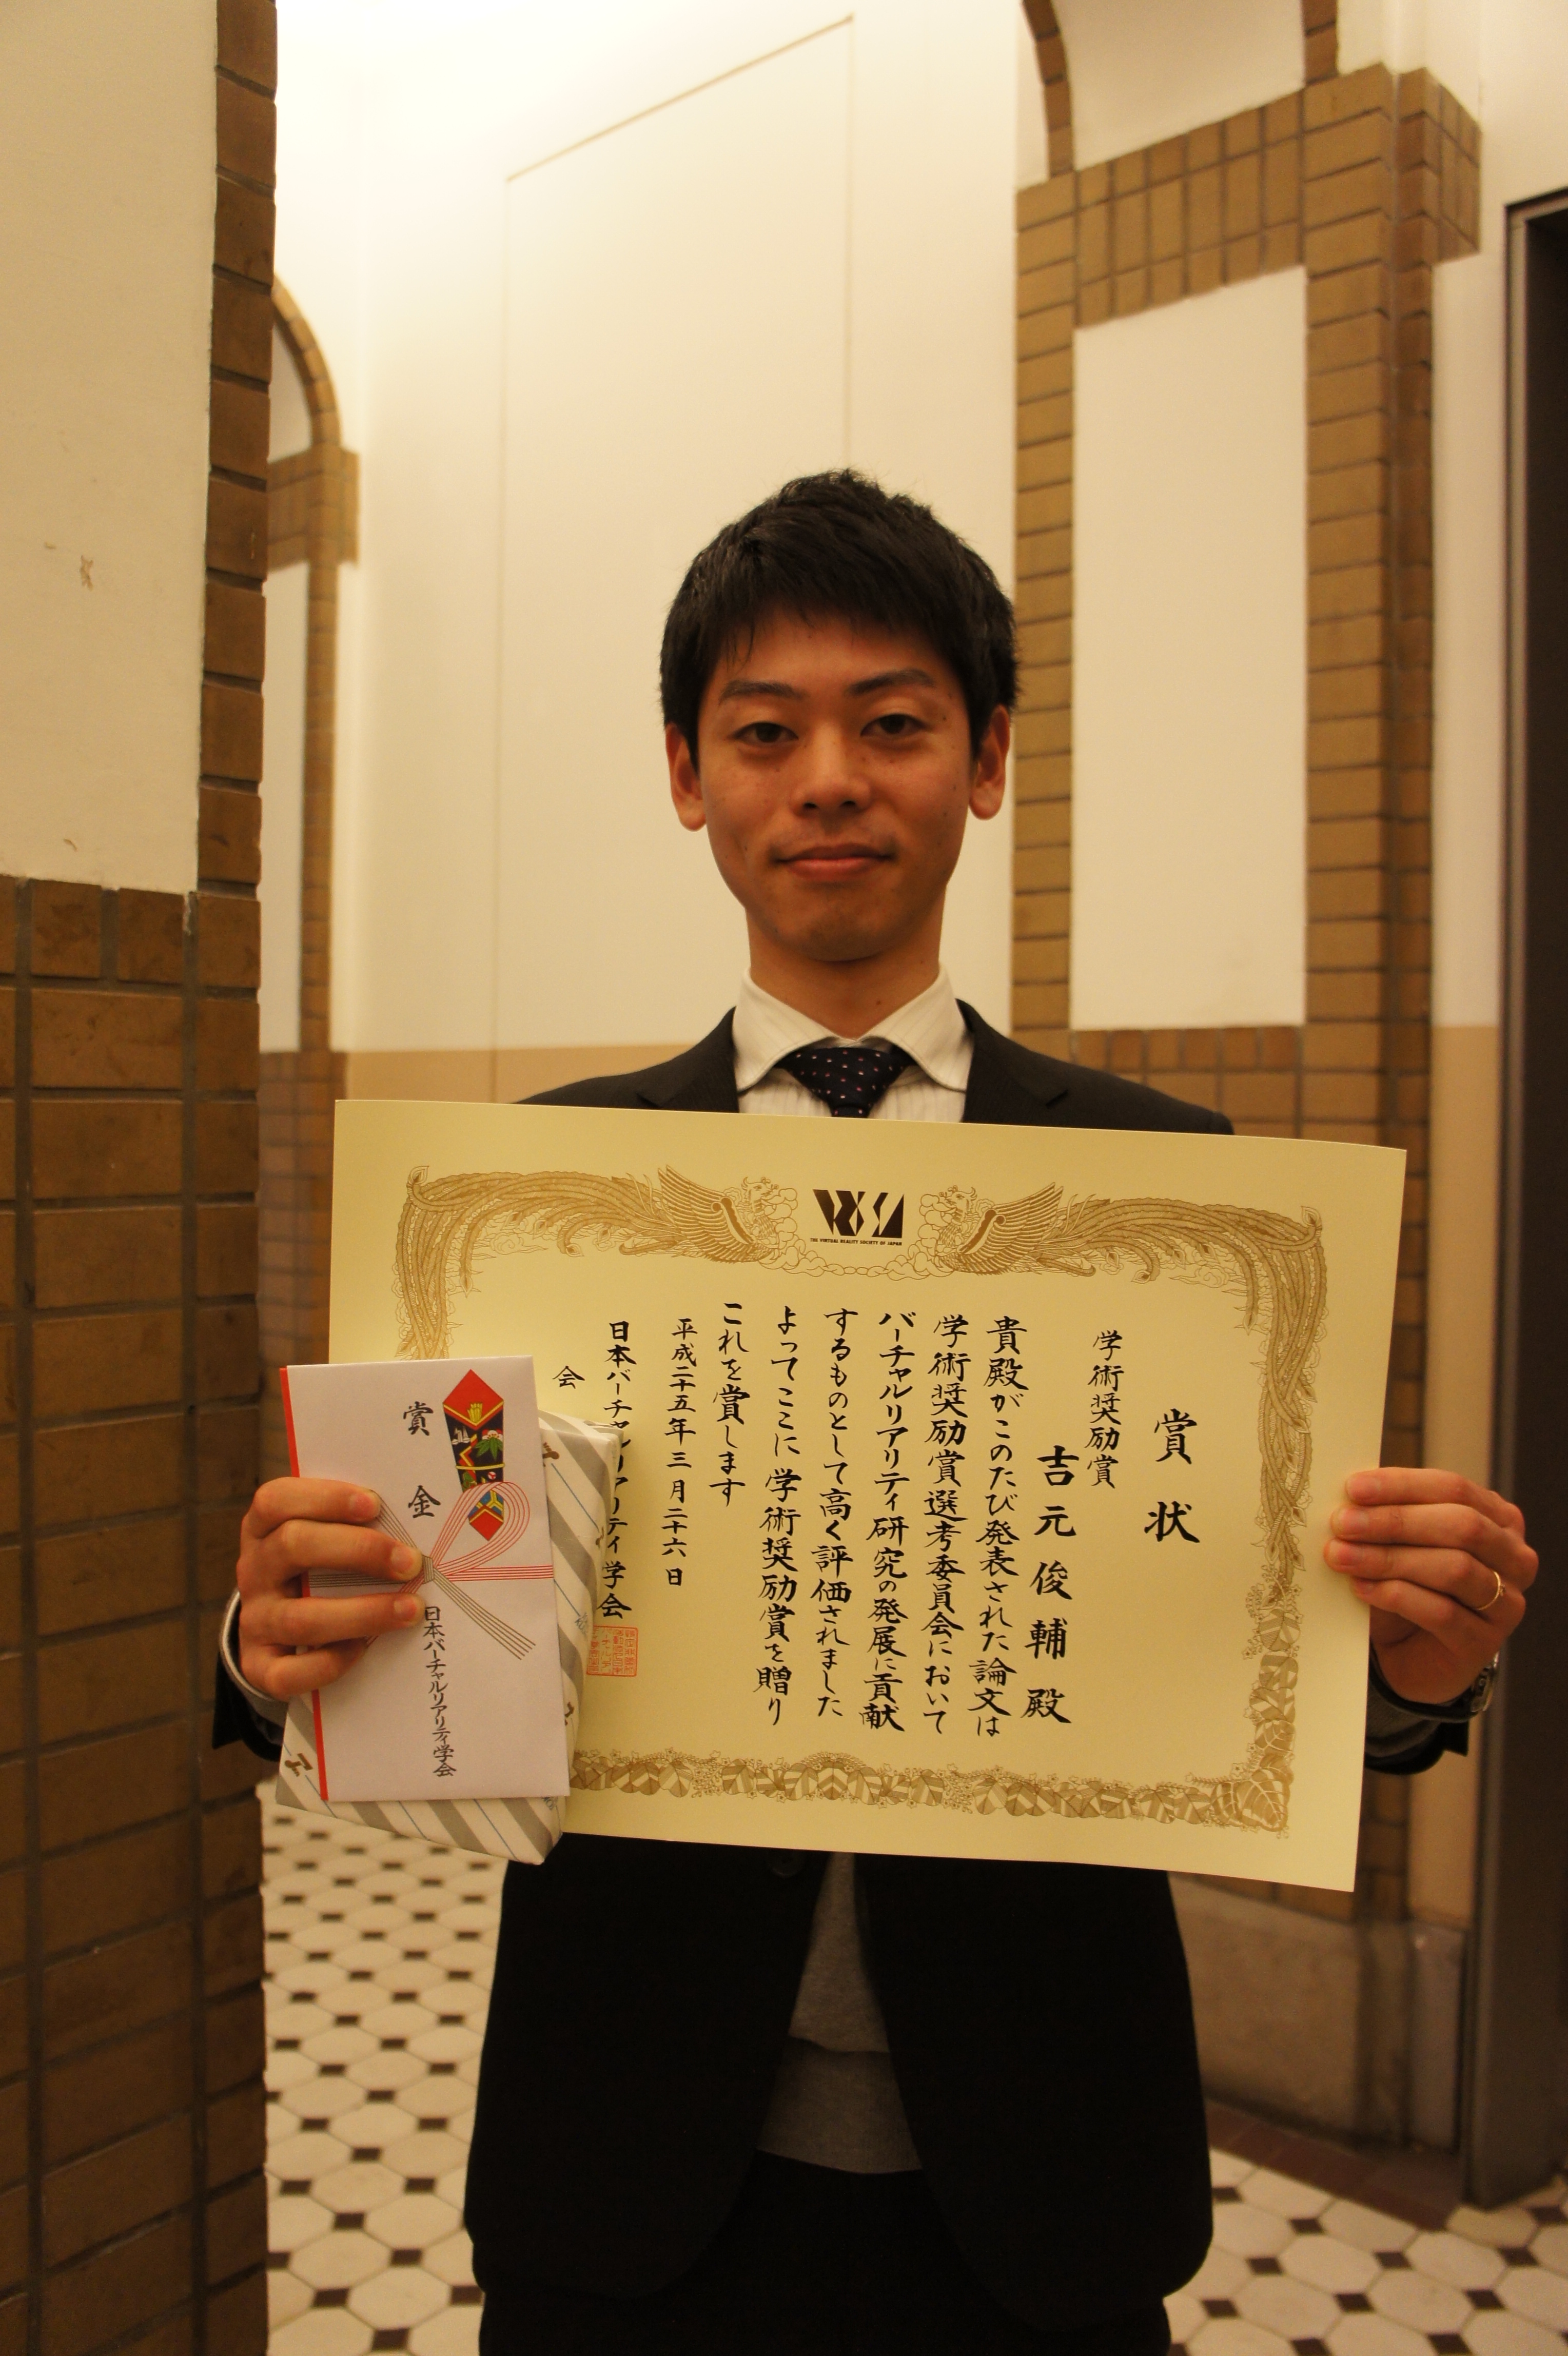 THE VIRTUAL REALITY SOCIETY OF JAPAN
賞状
学術奨励賞
吉元俊輔殿
貴殿がこのたび発表された論文は
学術奨励賞選考委員会において
バーチャルリアリティ研究の発展に貢献
するものとして高く評価されました
よってここに学術奨励賞を贈り
これを賞します
平成二十五年三月二十六日
日本バーチャルリアリティ学会
会
賞金
日本バーチャルリアリティ学会